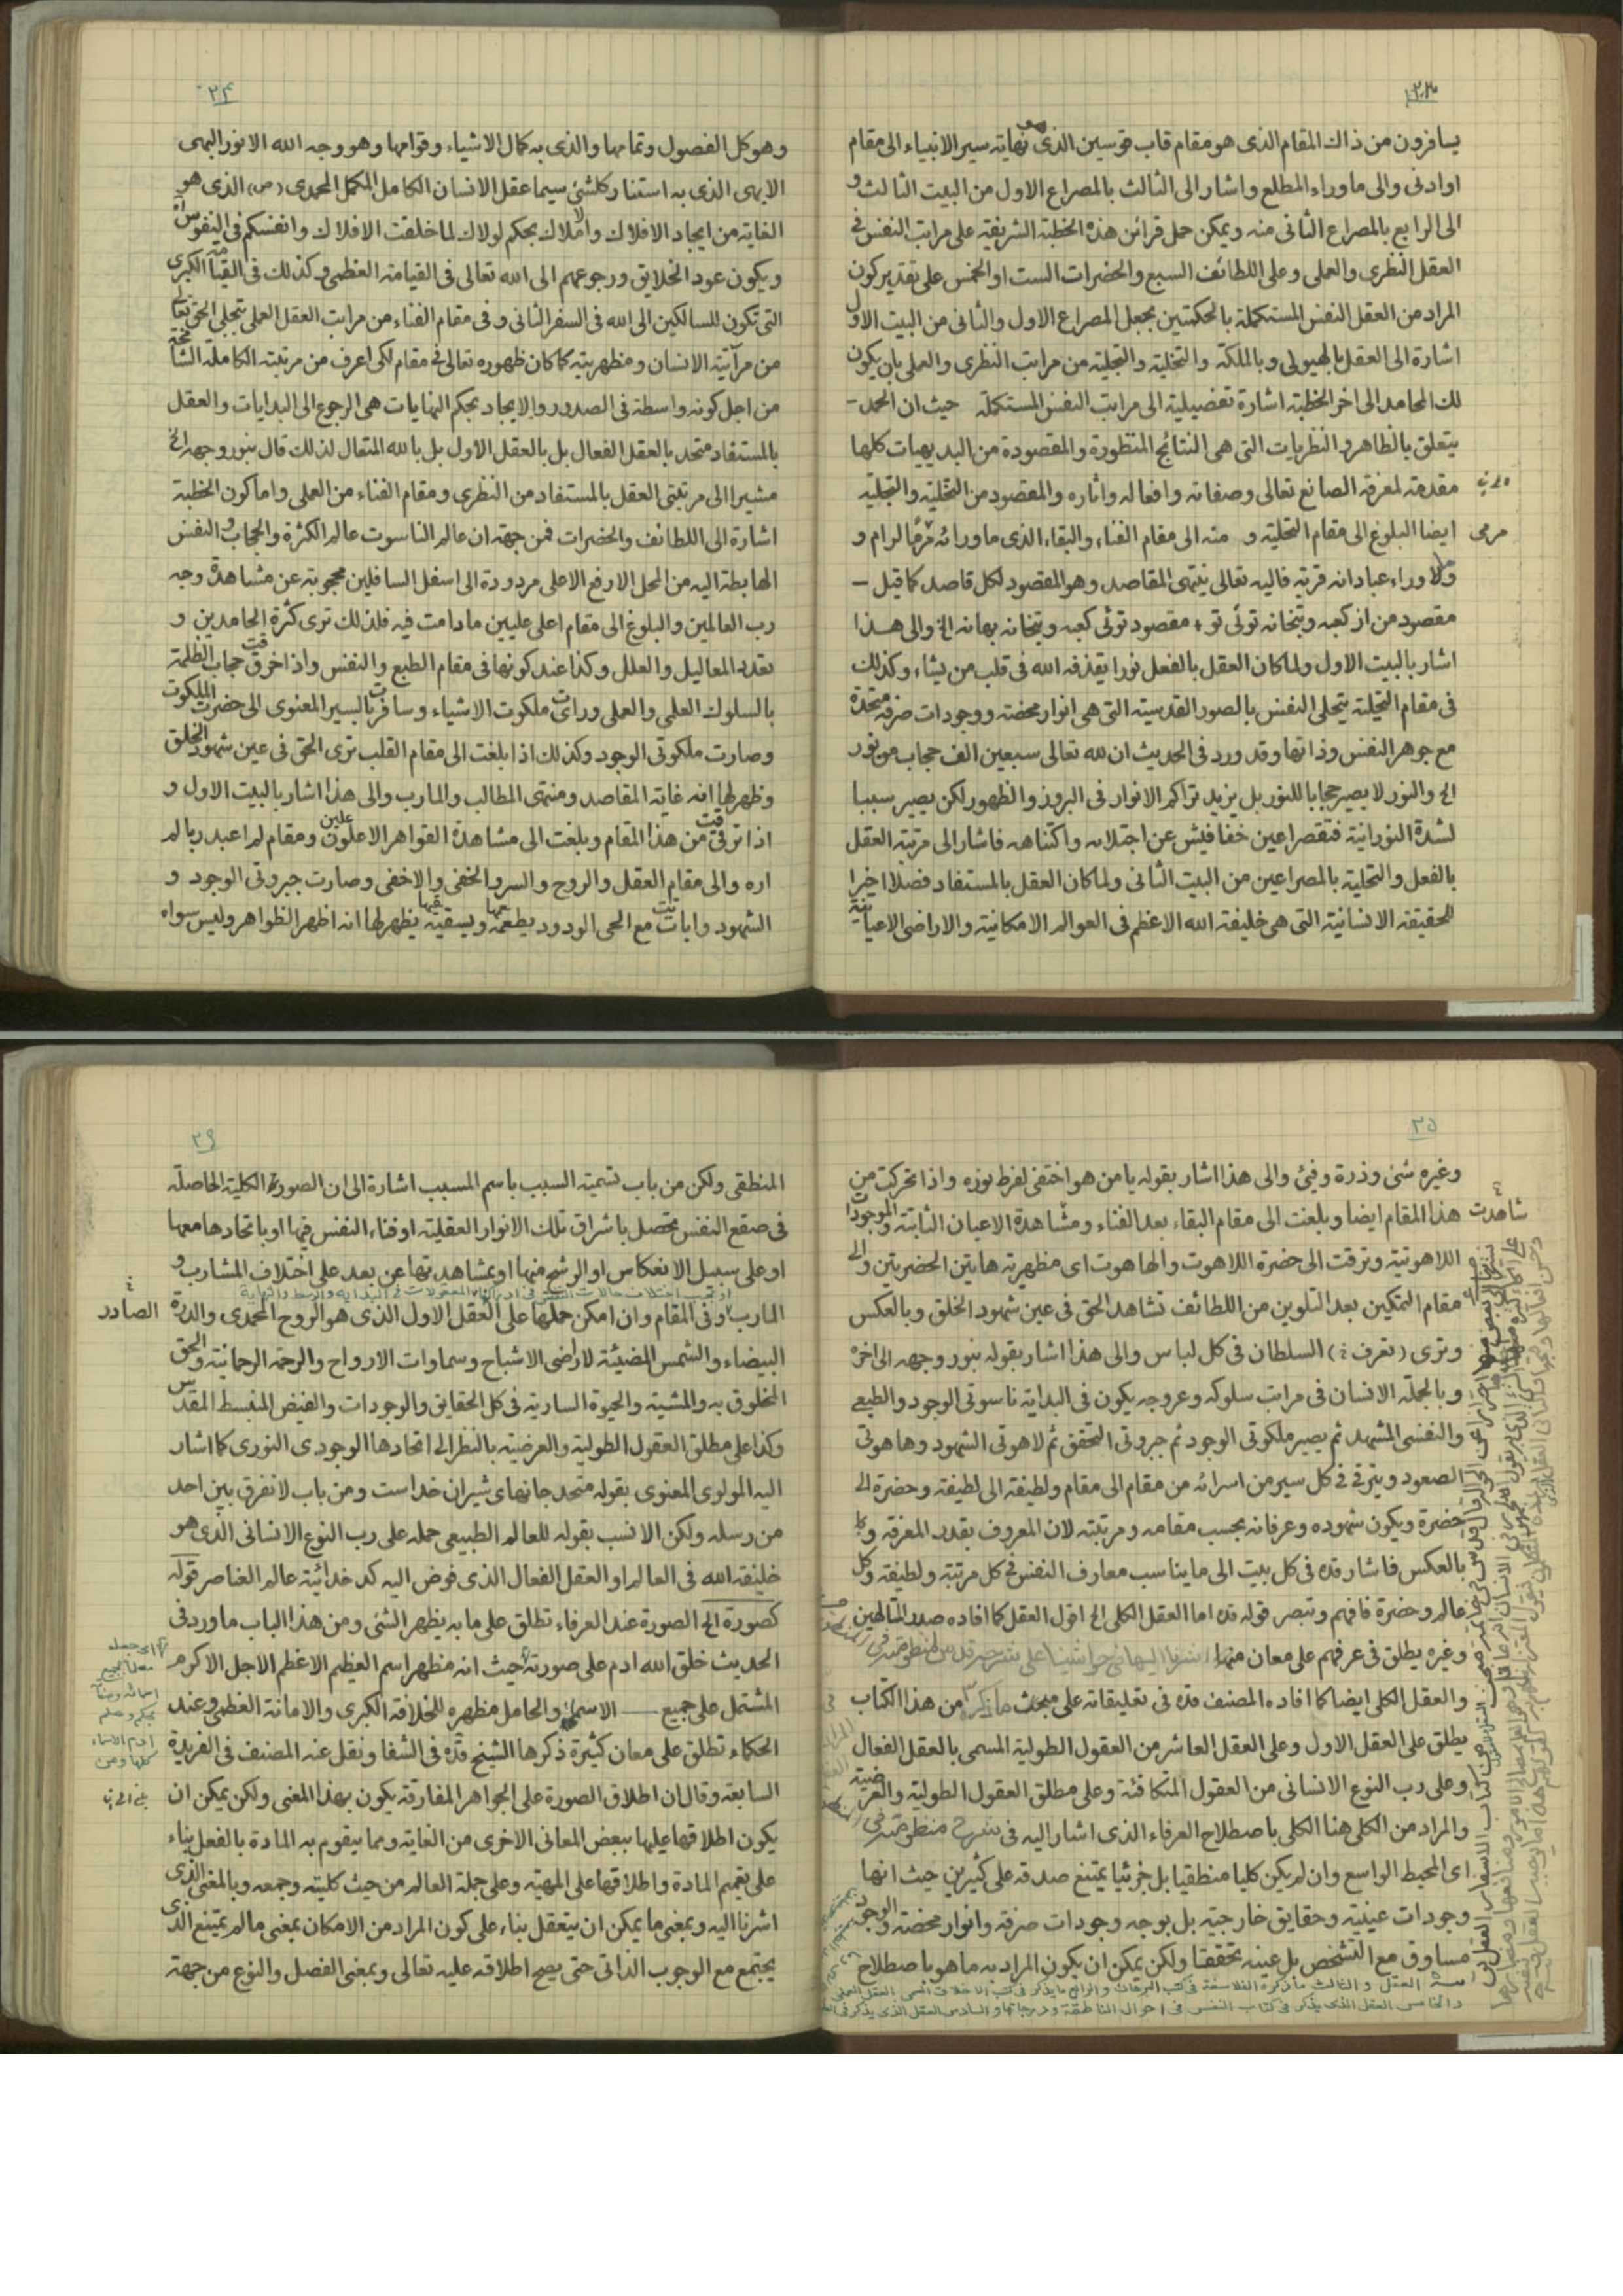 ٢٣
يسافرون من ذاك المقام الذى هو مقام قاب قوسين الذى هو نهايته سير الانبياء الى مقام
اوادنى والى ما وراء المطلع واشار الى الثالث بالمصراع الاول من البيت الثالث و
الى الرابع بالمصراع الثانى منه ويمكن حمل قرائن هذه الخطبة الشريفة على مراتب النفس فى
العقل النظرى والعملى وعلى اللطائف السبع والحضرات الست او الخمس على تقدير كون
المراد من العقل النفس المستكملة بالحكمتين بجعل المصراع الاول والثانى من البيت الاول
اشارة الى العقل بالهيولى وبالملكة والتخلية والتجلية من مراتب النظرى والعملى بان يكون
لك المحامد الى اخر الخطبة اشارة تفصيلية الى مراتب النفس المستكملة حيث ان الحمد -
يتعلق بالظاهر والنظريات التى هى النتائج المنظورة والمقصودة من البديهيات كلها
مقدمة لمعرفة الصانع تعالى وصفاته وافعاله واثاره والمقصود من التخلية والتجلية
ايضا البلوغ الى مقام التحلية و منه الى مقام الفناء والبقاء الذى ما ورائه مرمًا لرام و
مرمى
ولا وراء عبادانه قرية فاليه تعالى ينتهى المقاصد وهو المقصود لكل قاصد كما قيل -
مقصود من از كعبه وبتخانه توئى تو + مقصود توئى كعبه وبتخانه بهانه الخ والى هذا
اشار بالبيت الاول ولما كان العقل بالفعل نورا يقذفه الله فى قلب من يشاء وكذلك
فى مقام التحلية يتحلى النفس بالصور القدسية التى هى انوار محضة ووجودات صرفة متحدة
مع جوهر النفس وذاتها وقد ورد فى الحديث ان لله تعالى سبعين الف حجاب من نور
الخ والنور لا يصير حجابا للنور بل يزيد تراكم الانوار فى البروز والظهور لكن يصير سببا
لشدة النورانية فتقصر اعين خفافيش عن اجتلائه واكتناهه فاشار الى مرتبة العقل
بالفعل والتحلية بالمصراعين من البيت الثانى ولما كان العقل بالمستفاد فصلا اخيرا
للحقيقة الانسانية التى هى خليفة الله الاعظم فى العوالم الامكانية والاراضى الاعيانية
٢٤
وهو كل الفصول وتمامها والذى به كمال الاشياء وقوامها وهو وجه الله الانور البهى
الابهى الذى به استنار كلشئ سيما عقل الانسان الكامل المكمل المحمدى (ص) الذى هو
الغاية من ايجاد الافلاك والاملاك بحكم لولاك لما خلقت الافلاك وانفسكم فى النفوس
ويكون عود الخلايق ورجوعهم الى الله تعالى فى القيامة العظمى وكذلك فى القيامة الكبرى
التى تكون للسالكين الى الله فى السفر الثانى وفى مقام الفناء من مراتب العقل العملى بتجلى الحق تعالى
من مرآتية الانسان ومظهريته كما كان ظهوره تعالى فى مقام لكى اعرف من مرتبته الكاملة الشامخة
من اجل كونه واسطة فى الصدور والايجاد بحكم النهايات هى الرجوع الى البدايات والعقل
بالمستفاد متحد بالعقل الفعال بل بالعقل الاول بل بالله المتعال لذلك قال بنور وجهه الخ
مشيرا الى مرتبتى العقل بالمستفاد من النظرى ومقام الفناء من العملى واما كون الخطبة
اشارة الى اللطائف والحضرات فمن جهة ان عالم الناسوت عالم الكثرة والحجاب والنفس
الهابطة اليه من المحل الارفع الاعلى مردودة الى اسفل السافلين محجوبة عن مشاهدة وجه
رب العالمين والبلوغ الى مقام اعلى عليين مادامت فيه فلذلك ترى كثرة الحامدين و
تعدد المعاليل والعلل وكذا عند كونها فى مقام الطبع والنفس واذا خرقت حجاب الظلمة
بالسلوك العلمى والعملى ورات ملكوت الاشياء وسافرت بالسير المعنوى الى حضرت الملكوت
وصارت ملكوتى الوجود وكذلك اذا بلغت الى مقام القلب ترى الحق فى عين شهود الخلق
وظهر لها انه غاية المقاصد ومنتهى المطالب والمارب والى هذا اشار بالبيت الاول و
اذا ترقت من هذا المقام وبلغت الى مشاهدة القواهر الاعلين ومقام لم اعبد ربا لم
اره والى مقام العقل والروح والسر والخفى والاخفى وصارت جبروتى الوجود و
الشهود واباتت مع الحى الودود يطعمها ويسقيها يظهر لها انه اظهر الظواهر وليس سواه
٢٥
وغيره شئ وذرة وفيئ والى هذا اشار بقوله يا من هو اختفى لفرط نوره واذا تحركت من
هذا المقام ايضا وبلغت الى مقام البقاء بعد الفناء ومشاهدة الاعيان الثابتة والموجودات
شاهدت
اللاهوتية وترقت الى حضرة اللاهوت والهاهوت اى مظهرية هاتين الحضرتين والى
مقام التمكين بعد التلوين من اللطائف تشاهد الحق فى عين شهود الخلق وبالعكس
وترى (تعرف) السلطان فى كل لباس والى هذا اشار بقوله بنور وجهه الى اخره
وبالجملة الانسان فى مراتب سلوكه وعروجه يكون فى البداية ناسوتى الوجود والطبعى
والنفسى المشهد ثم يصير ملكوتى الوجود ثم جبروتى التحقق ثم لاهوتى الشهود وهاهوتى
الصعود ويترقى فى كل سير من اسرائه من مقام الى مقام ولطيفة الى لطيفة وحضرة الى
حضرة ويكون شهوده وعرفانه بحسب مقامه ومرتبته لان المعروف بقدر المعرفة و
بالعكس فاشار قده فى كل بيت الى ما يناسب معارف النفس فى كل مرتبة ولطيفة وكل
عالم وحضرة فافهم وتبصر قوله قده اما العقل الكلى الخ اقول العقل كما افاده صدر المتالهين
وغيره يطلق فى عرفهم على معان منها اشرنا اليها فى حواشينا على
والعقل الكلى ايضا كما افاده المصنف قده فى تعليقاته على مبحث ما ذكره من هذا الكتاب
يطلق على العقل الاول وعلى العقل العاشر من العقول الطولية المسمى بالعقل الفعال
وعلى رب النوع الانسانى من العقول المتكافئة وعلى مطلق العقول الطولية والعرضية
والمراد من الكلى هنا الكلى باصطلاح العرفاء الذى اشار اليه فى شرح منظومته فى
اى المحيط الواسع وان لم يكن كليا منطقيا بل جزئيا يمتنع صدقه على كثيرين حيث انها
وجودات عينية وحقايق خارجية بل بوجه وجودات صرفة وانوار محضة والوجود
مساوق مع التشخص بل عينه تحققتا ولكن يمكن ان يكون المراد به ما هو باصطلاح
العقل والثالث ما ذكره الفلاسفة فى كتب البرهان والرابع ما يذكر فى كتب الاخلاق المسمى العقل العملى
والخامس العقل الذى يذكر فى كتاب النفس فى احوال الناطقة ودرجاتها والسادس العقل الذى يذكر فى
٢٦
المنطقى ولكن من باب تسمية السبب باسم المسبب اشارة الى ان الصورة الكلية الحاصلة
فى صقع النفس يتحصل باشراق تلك الانوار العقلية او فناء النفس فيها او باتحادها معها
او على سبيل الانعكاس او الرشح منها او بمشاهدتها عن بعد على اختلاف المشارب و
او بحسب اختلاف حالات النفس فى ادراك المعقولات فى البداية والوسط والنهاية
المارب وفى المقام وان امكن حملها على العقل الاول الذى هو الروح المحمدى والدرة
الصادر
البيضاء والشمس المضيئة لاراضى الاشباح وسماوات الارواح والرحمة الرحمانية والحق
المخلوق به والمشية والحيوة السارية فى كل الحقايق والوجودات والفيض المنبسط المقدس
وكذا على مطلق العقول الطولية والعرضية بالنظر الى اتحادها الوجودى النورى كما اشار
اليه المولوى المعنوى بقوله متحد جانهاى شيران خداست ومن باب لا نفرق بين احد
من رسله ولكن الانسب بقوله للعالم الطبيعى حمله على رب النوع الانسانى الذى هو
خليفة الله فى العالم او العقل الفعال الذى فوض اليه كدخدائية عالم العناصر قوله
كصورة الخ الصورة عند العرفاء تطلق على ما به يظهر الشئ ومن هذا الباب ما ورد فى
الحديث خلق الله ادم على صورته حيث انه مظهر اسم العظيم الاعظم الاجل الاكرم
المشتمل على جميع الاسماء والحامل مظهره للخلافة الكبرى والامانة العظمى وعند
الحكماء تطلق على معان كثيرة ذكرها الشيخ قده فى الشفا ونقل عنه المصنف فى الفريدة
السابعة وقال ان اطلاق الصورة على الجواهر المفارقة يكون بهذا المعنى ولكن يمكن ان
يكون اطلاقها عليها ببعض المعانى الاخرى من الغاية ومما يتقوم به المادة بالفعل بناء
على تعميم المادة واطلاقها على المهية وعلى جملة العالم من حيث كليته وجمعه وبالمعنى الذى
اشرنا اليه وبمعنى ما يمكن ان يتعقل بناء على كون المراد من الامكان بمعنى ما لم يمتنع الذى
يجتمع مع الوجوب الذاتى حتى يصح اطلاقه عليه تعالى وبمعنى الفصل والنوع من جهة